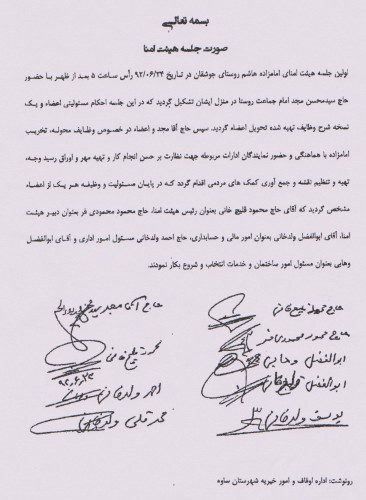 بسمه تعالی
صورت جلسه هیئت امنا
اولین جلسه هیئت امنای امامزاده هاشم روستای جوشقان در تاریخ ۹۲/۰۶/۲۴ رأس ساعت ۵ بعد از ظهر با حضور
حاج سیدمحسن مجد امام جماعت روستا در منزل ایشان تشکیل گردید که در این جلسه احکام مسئولیتی اعضاء و یک
نسخه شرح وظایف تهیه شده تحویل اعضاء گردید. سپس حاج آقا مجد و اعضاء در خصوص وظایف محوله، تخریب
امامزاده با هماهنگی و حضور نمایندگان ادارات مربوطه جهت نظارت بر حسن انجام کار و تهیه مهر و اوراق رسید وجه،
تهیه و تنظیم نقشه و جمع آوری کمک های مردمی اقدام گردد که در پایان مسئولیت و وظیفه هر یک از اعضاء
مشخص گردید که آقای حاج محمود قلیچ خانی بعنوان رئیس هیئت امنا، حاج محمود محمودی فر بعنوان دبیر هیئت
امنا، آقای ابوالفضل ولدخانی بعنوان امور مالی و حسابداری، حاج احمد ولدخانی مسئول امور اداری و آقای ابوالفضل
وهابی بعنوان مسئول امور ساختمان و خدمات انتخاب و شروع بکار نمودند.
حاج محمود قلیچ خانی
حاج محمود محمودی فر
ابوالفضل وهابی
ابوالفضل
یوسف ولدخانی
حاج آقا مجد سید
محمد قلیچ خانی
۹۲،۶،۲۴
احمد ولدخانی
محمدقلی ولدخانی
رونوشت: اداره اوقاف و امور خیریه شهرستان ساوه